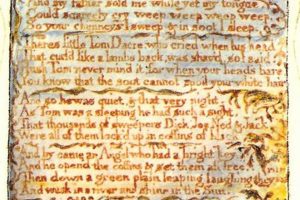 And my father sold me while yet my tongue
Could scarcely cry weep weep weep weep
So your chimneys I sweep & in soot I sleep
Theres little Tom Dacre who cried when his head
That curl'd like a lambs back, was shav'd, so I said
Hush Tom never mind it, for when your heads bare
You know that the soot cannot spoil your white hair
And so he was quiet, & that very night
As Tom was a sleeping he had such a sight
That thousands of sweepers Dick, Joe Ned & Jack
Were all of them lock'd up in coffins of black
And by came an Angel who had a bright key
And he open'd the coffins & set them all free
Then down a green plain leaping laughing they run
And wash in a river and shine in the Sun